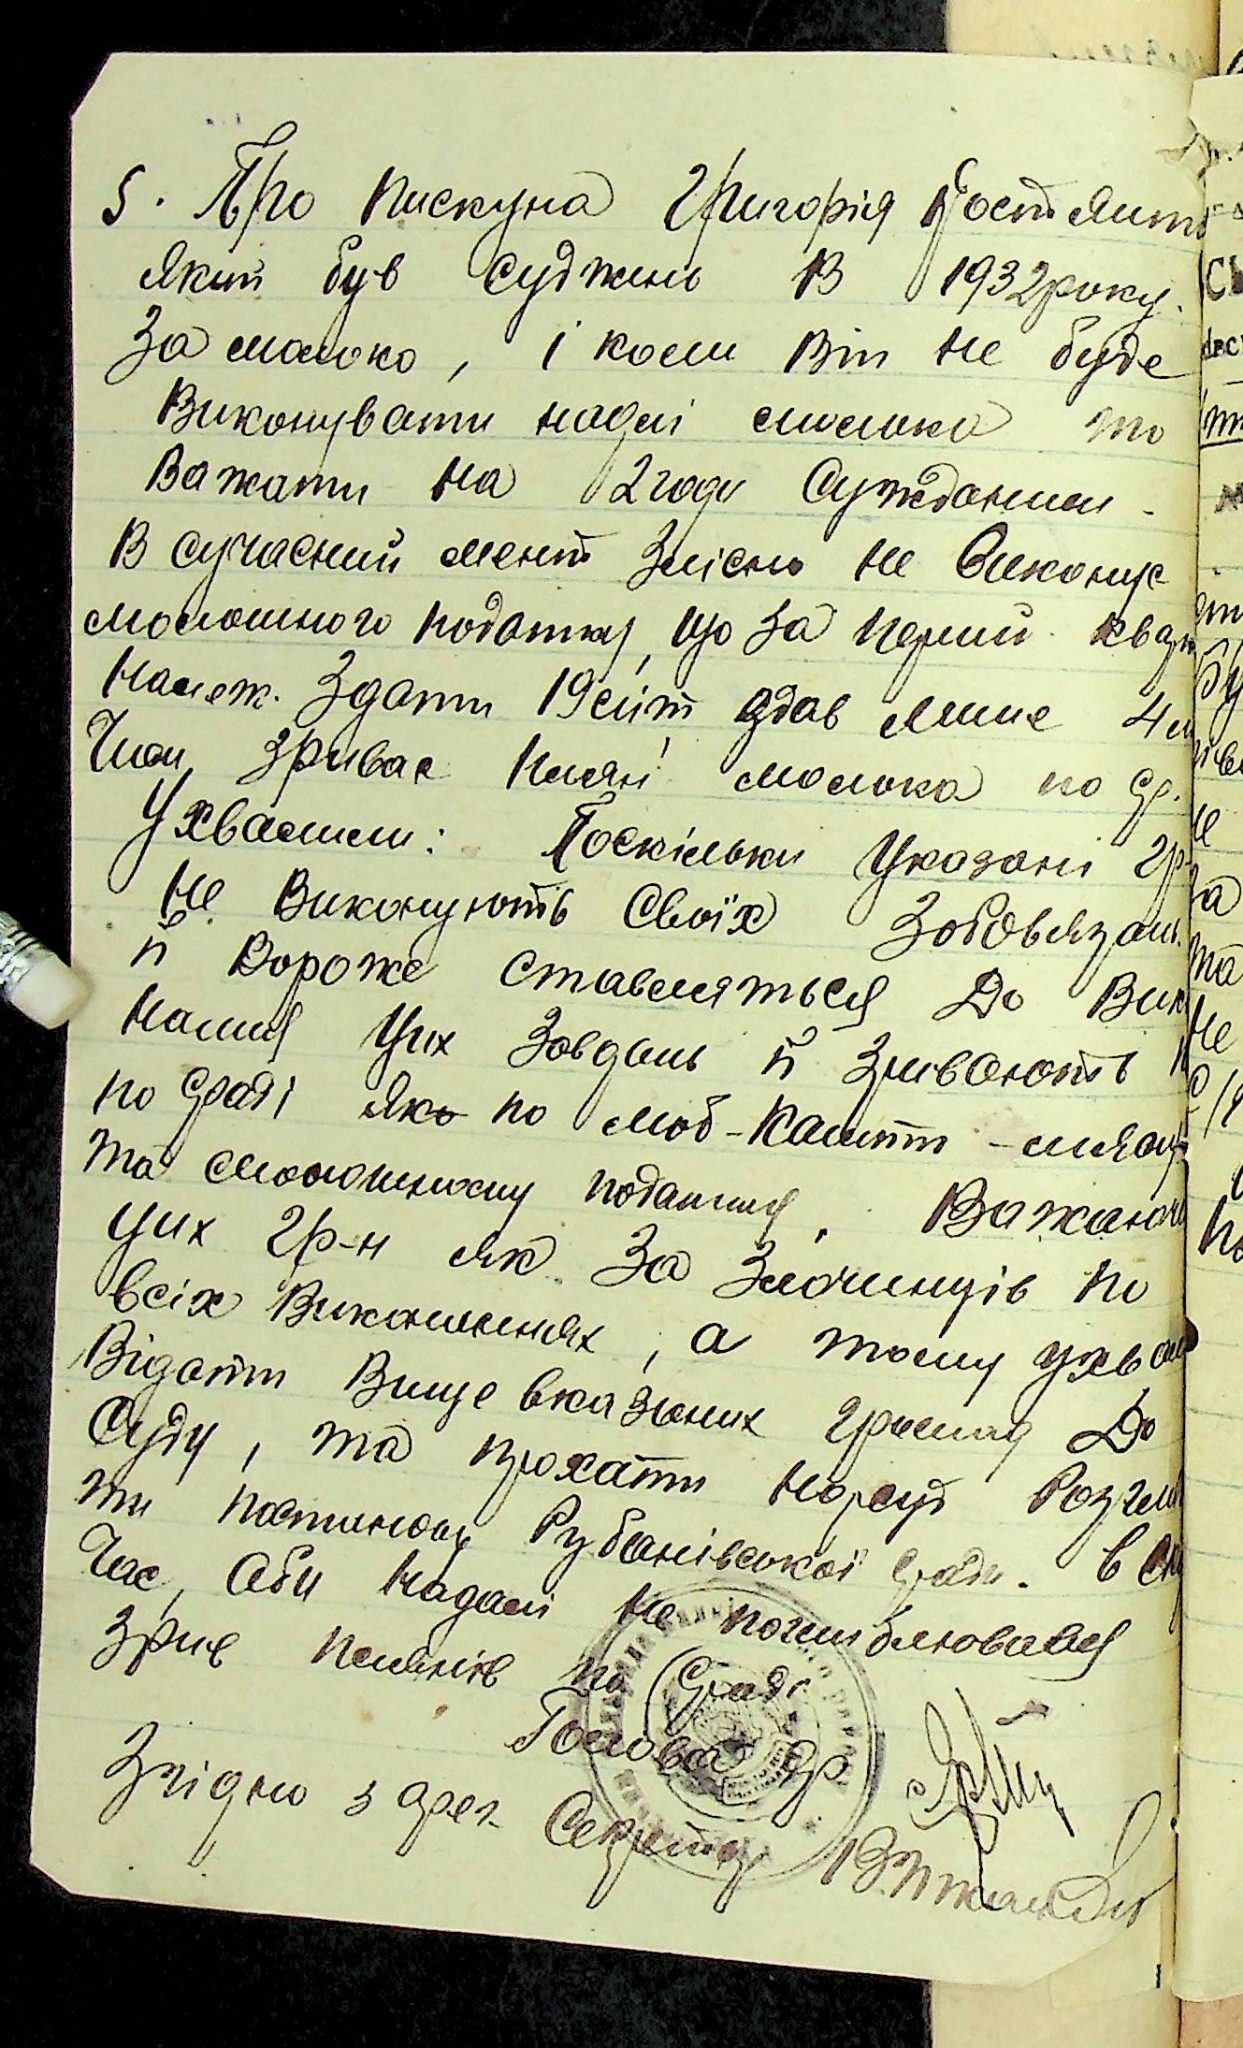 5. Про Пискуна Григорія
Який був суджень В 1932 року.
За молоко, і коли Він не буде
Виконувати надалі молоко то
Важати на 2 годи Сужданим.
В сучасний мент Злісно не Виконує
молошного податку, що за перший кварт
Належ. Здати 19 літ здав лише 4 л
Чим зриває пляні молока по ср.
Ухвалили: Поскільки Указані гр.
не Виконують Своїх Зобовьязань.
й Вороже ставляться До Вик
нання Цих Завдань й зривають
по сраді яко по моб-кашт
та молошному податку. Важаючи
цих гр-н як За Злочинців по
всіх Виконаннях, а тому ухвал
Відати Вище вказаних громад До
Суду, та прохати Нарсуд Розгля
ти постанову Рубанівської сради. в
Час, Аби Надалі Не поглиблювався
Зрив пелянів по Сраді
Голова ср
Згідно з ориг. Секретар